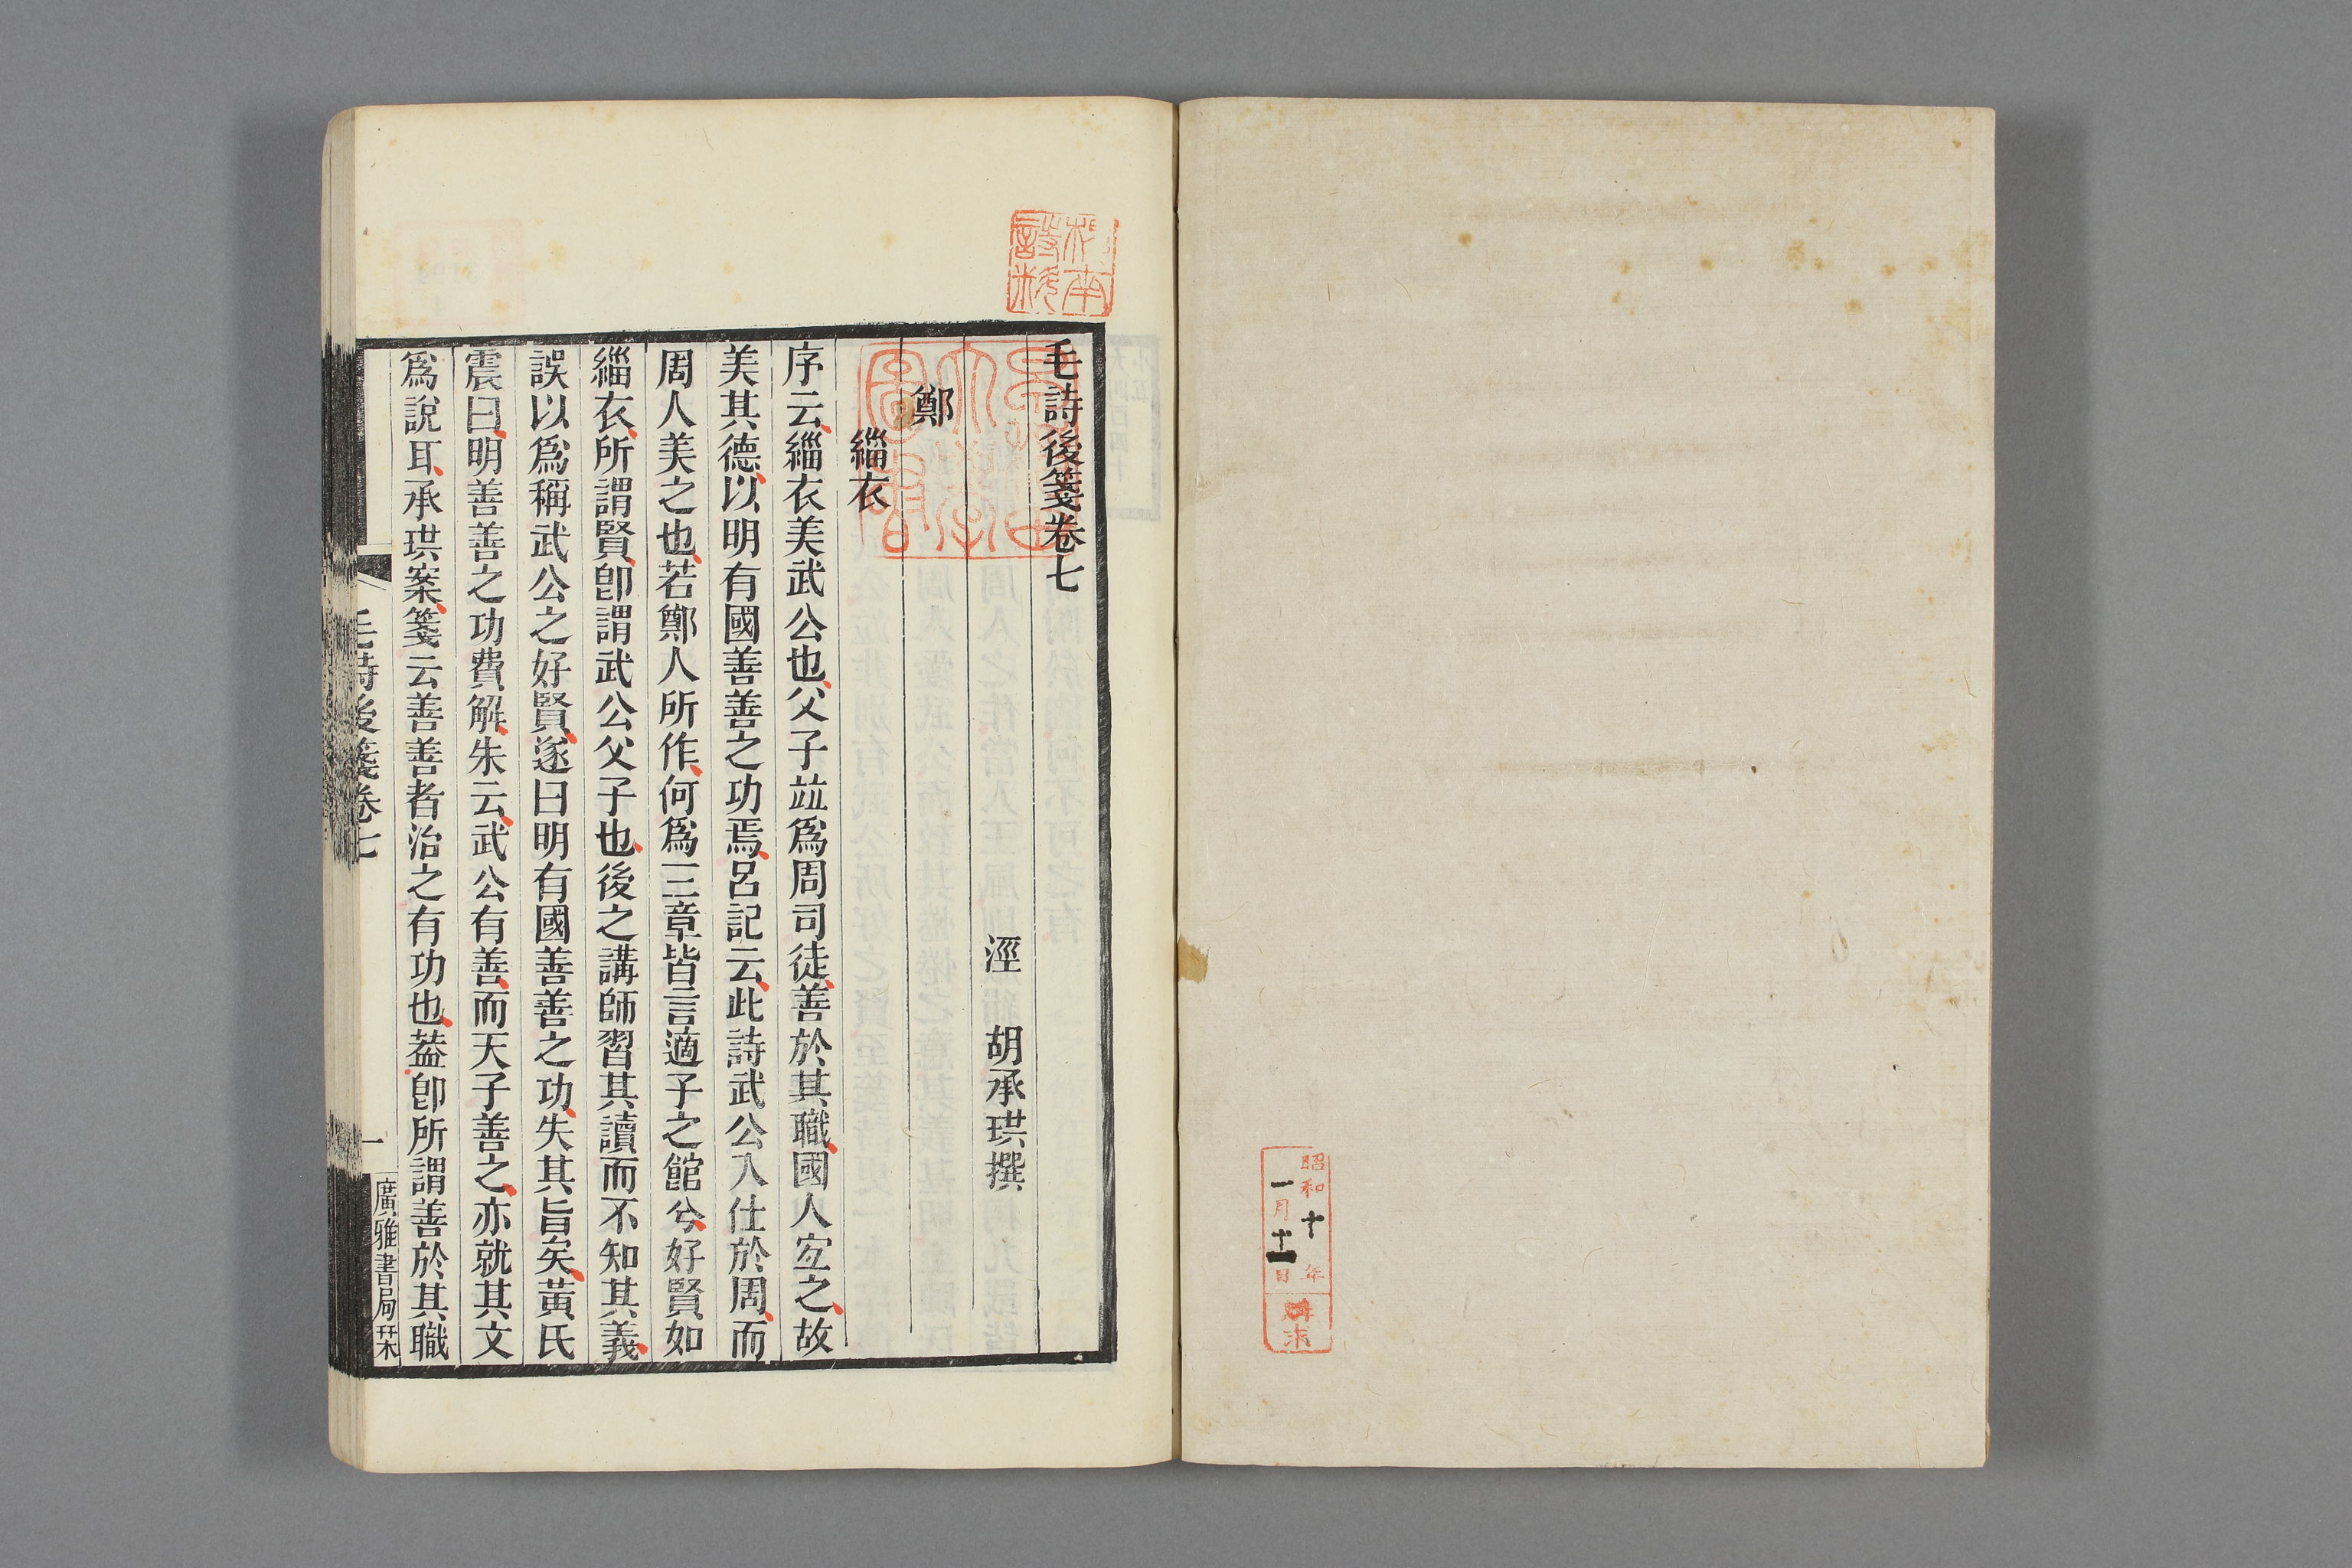 昭和十年
一月十一日
購求
毛詩後箋卷七
涇 胡承珙撰
鄭
緇衣
序云緇衣美武公也父子竝爲周司徒善於其職國人宜之故
美其德以明有國善善之功焉呂記云此詩武公入仕於周而
周人美之也若鄭人所作何爲三章皆言適子之館兮好賢如
緇衣所謂賢卽謂武公父子也後之講師習其讀而不知其義
誤以爲稱武公之好賢遂曰明有國善善之功失其旨矣黃氏
震曰明善善之功費解朱云武公有善而天子善之亦就其文
爲說耳承珙案箋云善善者治之有功也葢卽所謂善於其職
毛詩後箋卷七
一
廣雅書局栞